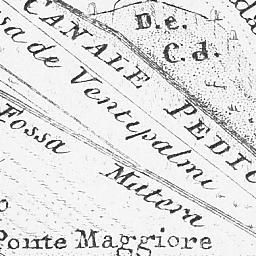 D. e.
C. d.
CANALE PEDIC
sa de Ventipalmi
Fossa Mutera
Ponte Maggiore